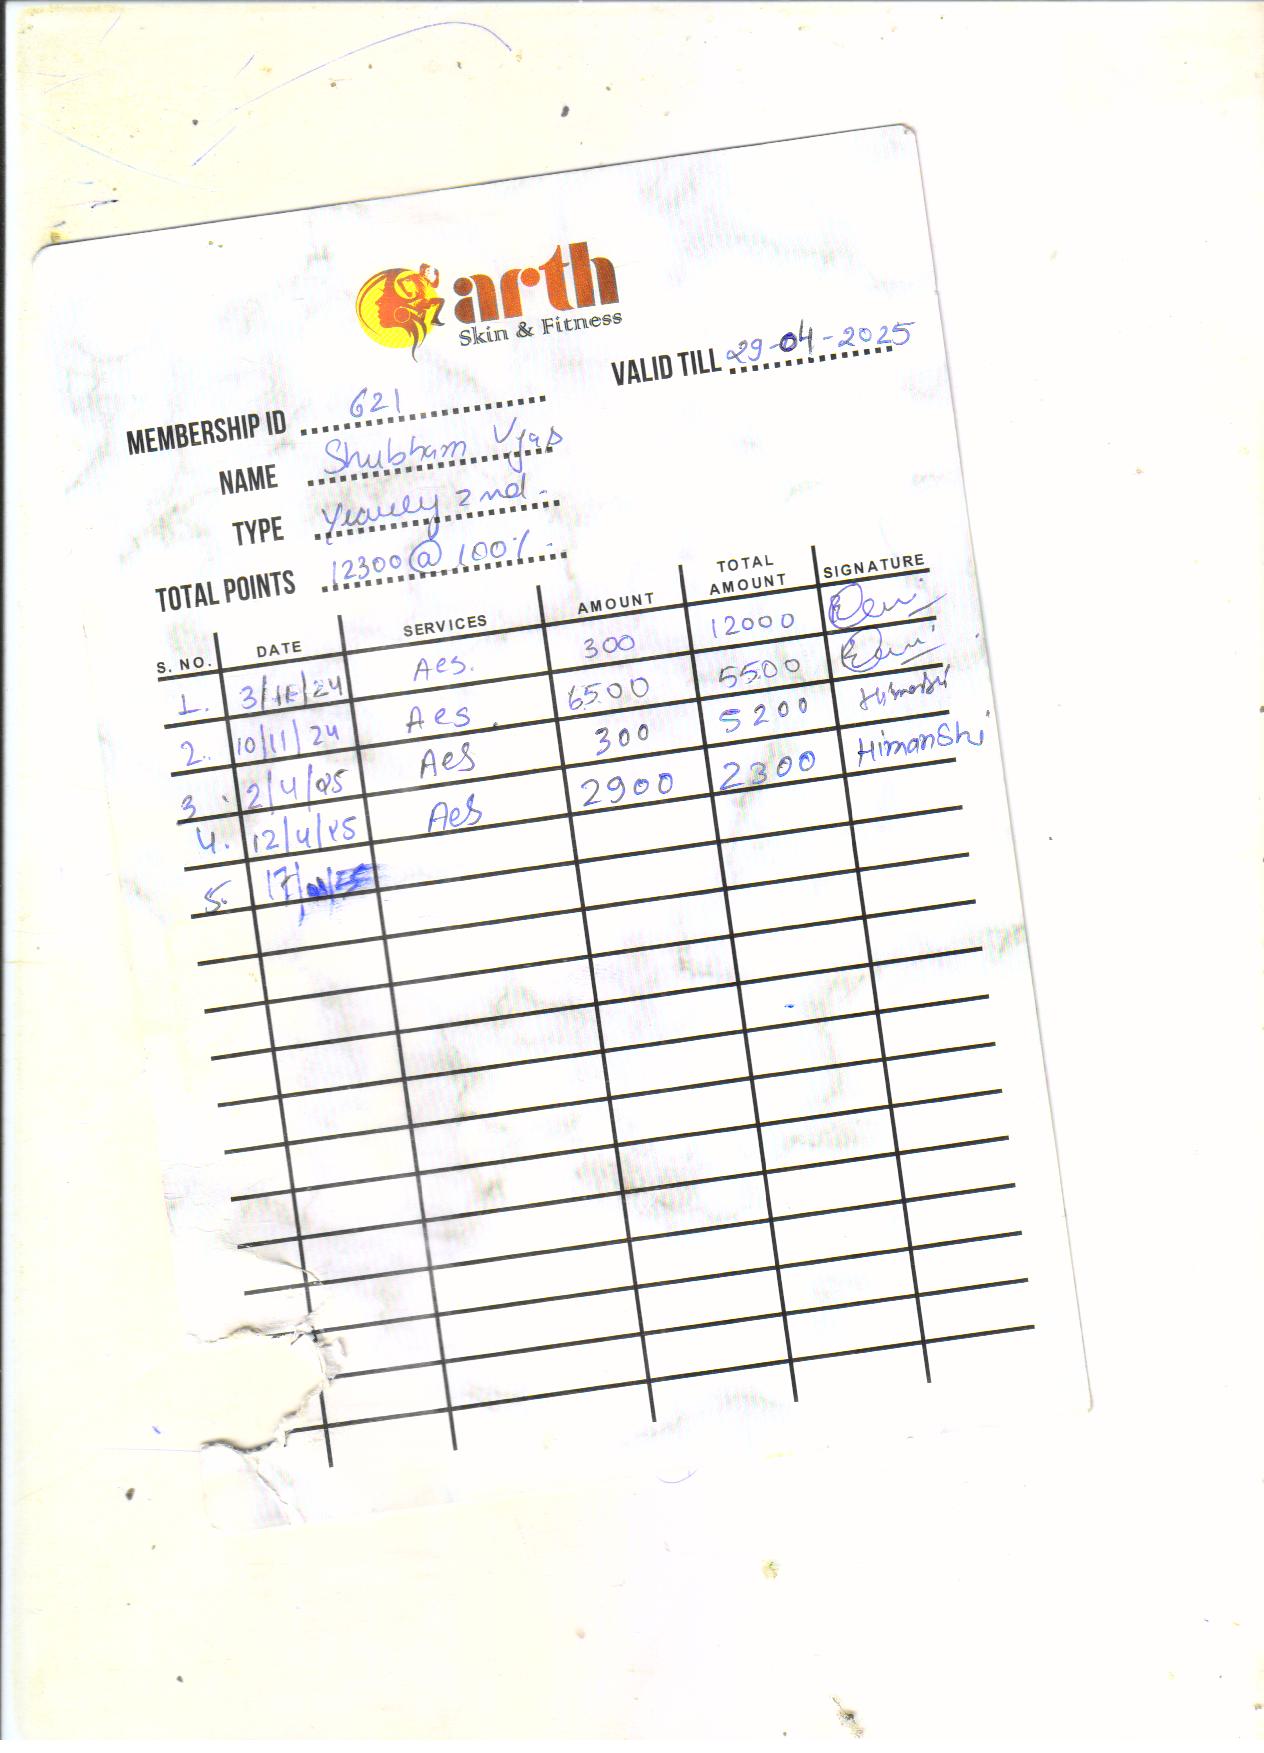 arth
Skin & Fitness
VALID TILL 29-04-2025
MEMBERSHIP ID 621
NAME Shubham Vyas
TYPE Yearly 2nd.
TOTAL POINTS 12300@100%.
S. NO. DATE SERVICES AMOUNT TOTAL AMOUNT SIGNATURE
1. 3/ /24 Aes. 300 12000
2. 10/11/24 Aes. 6500 5500
3. 2/4/25 Aes 300 5200 Himanshi
4. 12/4/25 Aes 2900 2300 HimanShi
5. 17/